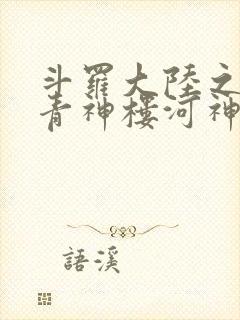 斗羅大陸之
青神樓河神
語溪